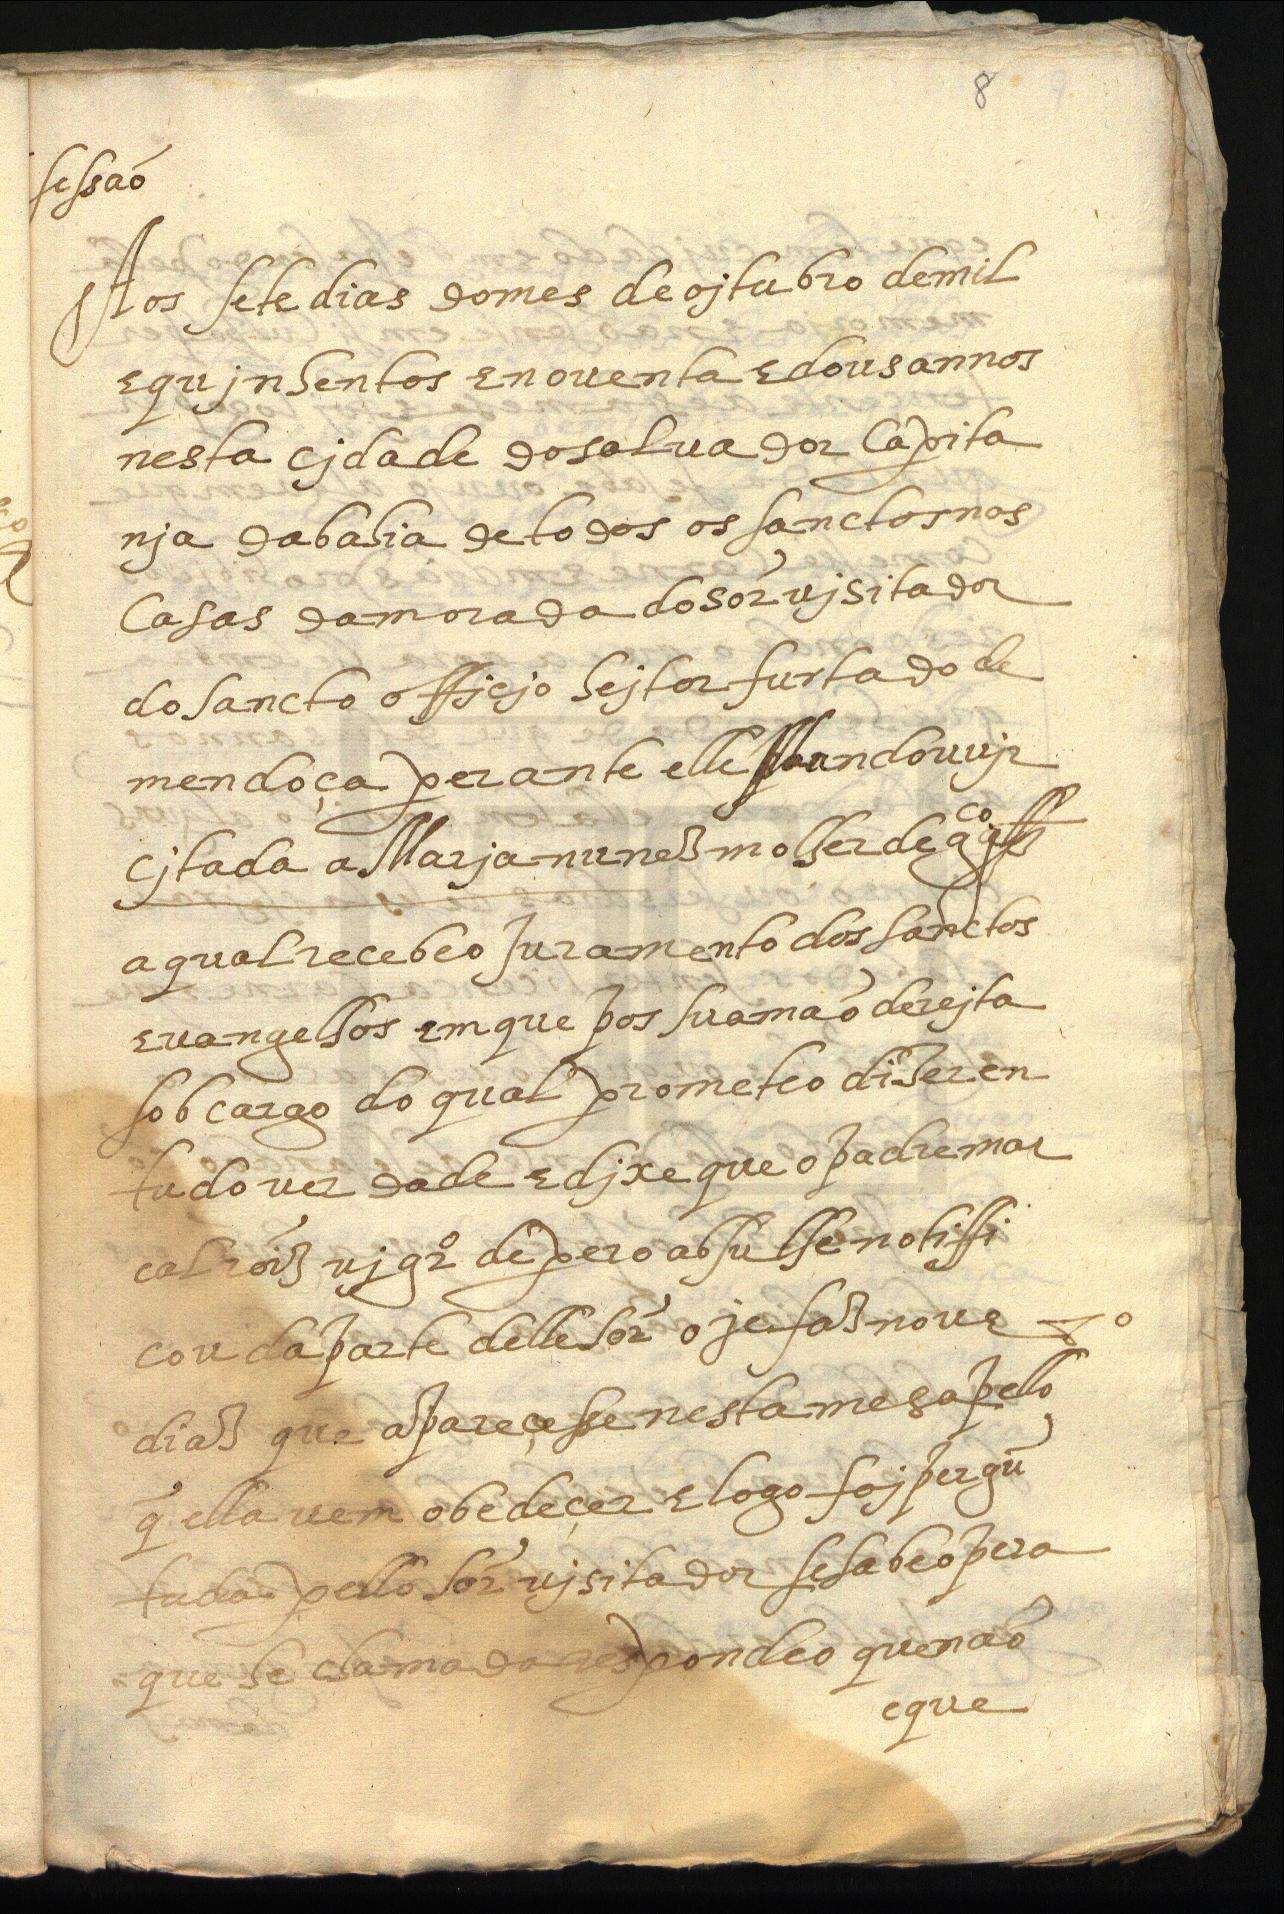 8
sessaõ
Aos sete dias do mes de ojtubro de mil
e qujnhentos e noventa e dous annos
nesta cjdade do saluador Capita
nja da bahia de todos os sanctos nas
Casas da morada do sõr vjsitador
do sancto officjo hejtor furtado de
mendoça perante elle mandou vjr
cjtada a Marja nunez molher de
a qual recebeo juramento dos sanctos
evangelhos em que pos sua maõ derejta
sob cargo do qual prometeo dizer en
tudo verdade e djxe que o padre mar
cal roiz vjgrº de pero absu lhe notiffi
cou da parte delle sõr oje faz nove
diaz que apareçesse nesta mesa pello
q̃ ella vem obedeçer e logo foj pergũ
tuda pello sõr vjsitador se sabe o pera
que he chamada respondeo que naõ
e que